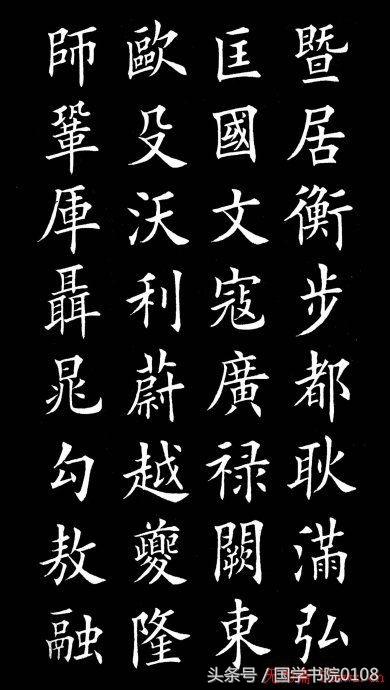 暨居衡步都耿滿弘
匡國文寇廣禄闕東
歐殳沃利蔚越夔隆
師鞏厙聶晁勾敖融
头条号 / 国学书院0108